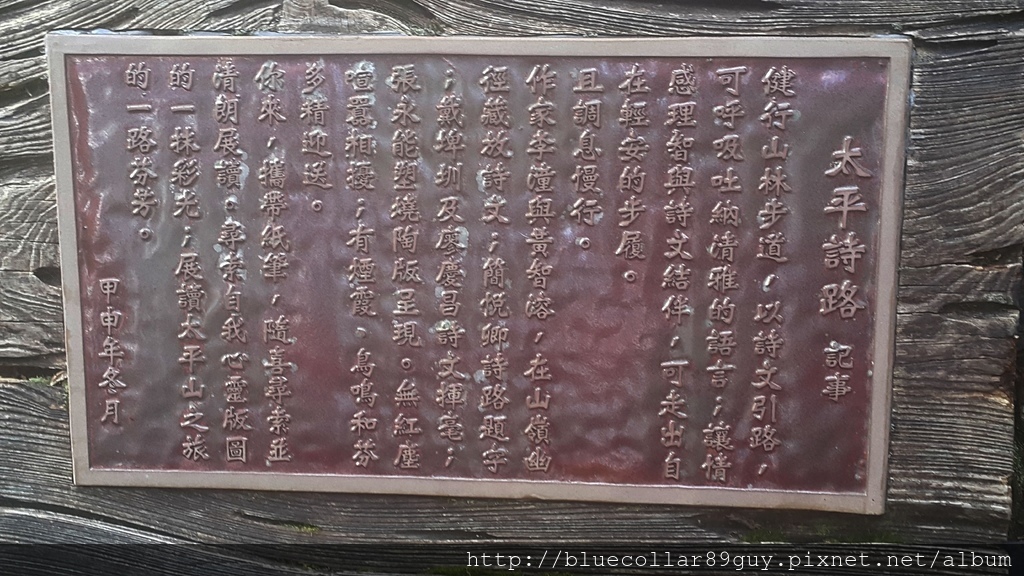 太平詩路 記事
健行山林步道，以詩文引路，
可呼吸吐納清雅的語言；讓情
感理智與詩文結伴，可走出自
在輕安的步履。
且調息慢行。
作家李潼與黃智溶，在山嶺幽
徑藏放詩文；簡悅卿詩路題字
；戴埠圳及廖慶昌詩文揮毫；
張永能塑燒陶版呈現。無紅塵
喧囂相擾；有煙霞、鳥鳴和芬
多精迎送。
你來，攜帶紙筆，隨喜尋索並
清朗展讀。尋索自我心靈版圖
的一抹彩光；展讀太平山之旅
的一路芬芳。
甲申年冬月
http://bluecollar89guy.pixnet.net/album